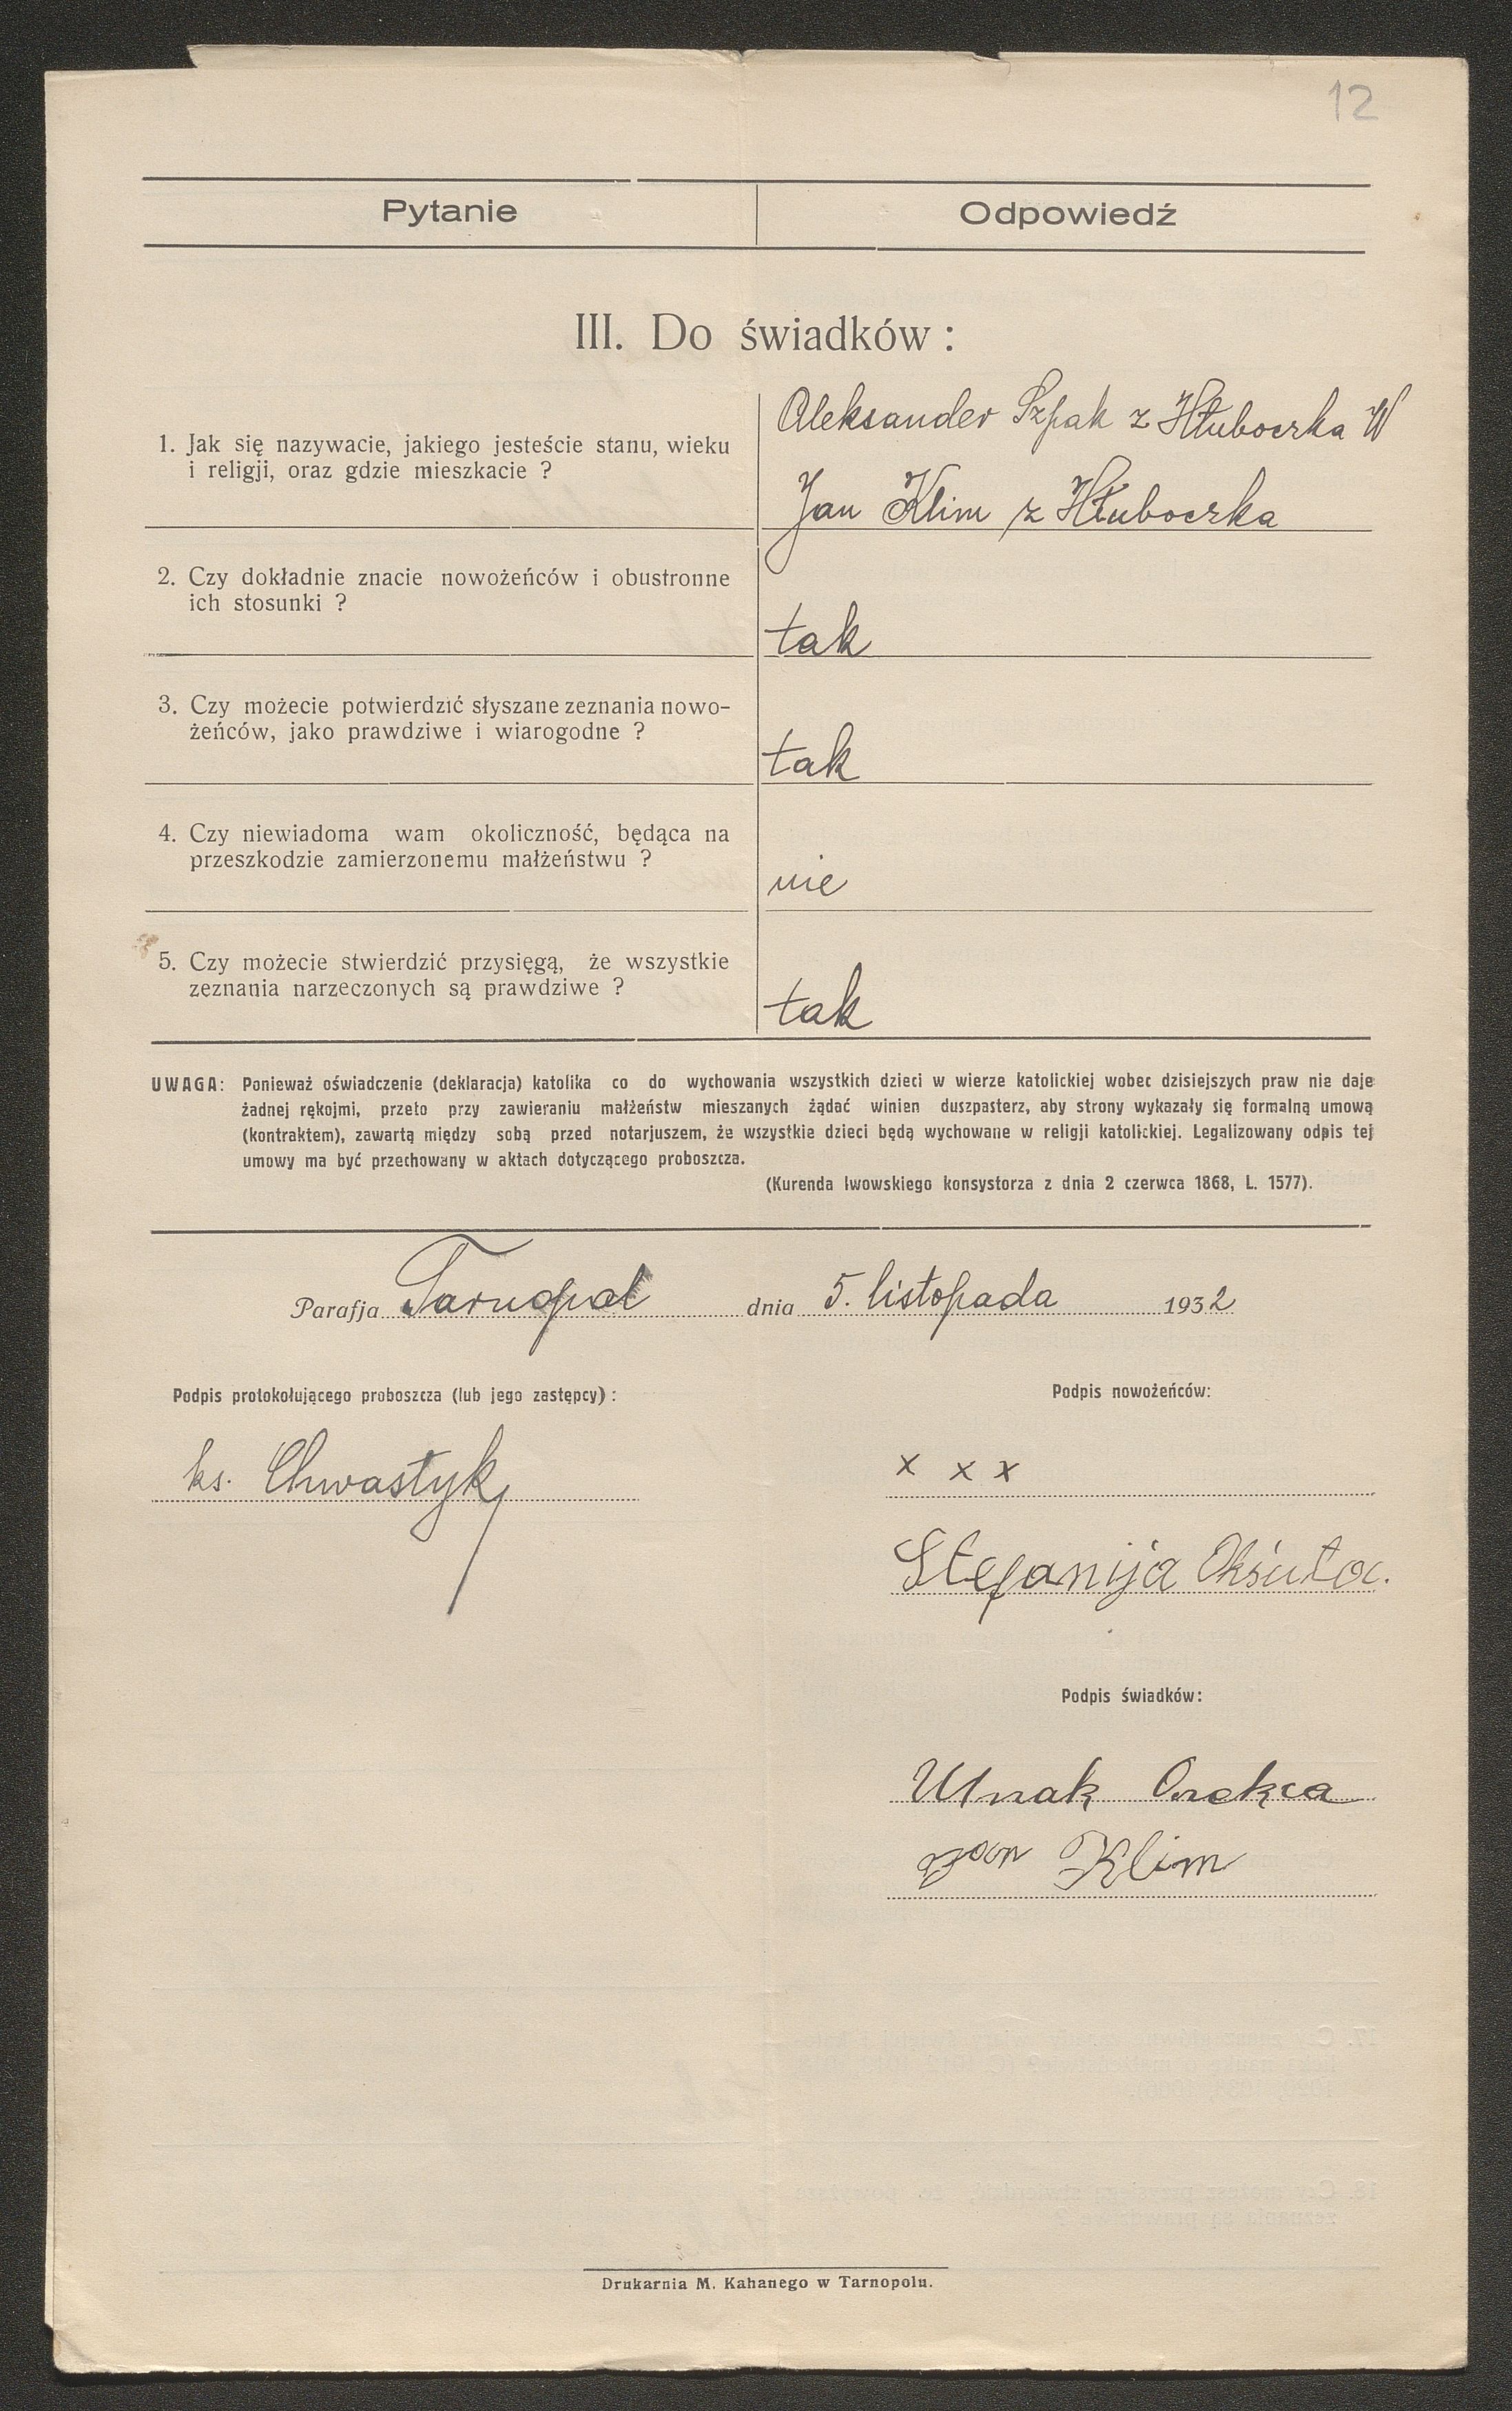 12
Pytanie
Odpowiedź
III. Do świadków :
1. Jak się nazywacie, jakiego jesteście stanu, wieku
i religji, oraz gdzie mieszkacie ?
Aleksander Szpak z Hłuboczka W
Jan Klim z Hłuboczka
2. Czy dokładnie znacie nowożeńców i obustronne
ich stosunki ?
tak
3. Czy możecie potwierdzić słyszane zeznania nowo-
żeńców, jako prawdziwe i wiarogodne ?
tak
4. Czy niewiadoma wam okoliczność, będąca na
przeszkodzie zamierzonemu małżeństwu ?
nie
5. Czy możecie stwierdzić przysięgą, że wszystkie
zeznania narzeczonych są prawdziwe ?
tak
UWAGA: Ponieważ oświadczenie (deklaracja) katolika co do wychowania wszystkich dzieci w wierze katolickiej wobec dzisiejszych praw nie daje
żadnej rękojmi, przeto przy zawieraniu małżeństw mieszanych żądać winien duszpasterz, aby strony wykazały się formalną umową
(kontraktem), zawartą między sobą przed notarjuszem, że wszystkie dzieci będą wychowane w religji katolickiej. Legalizowany odpis tej
umowy ma być przechowany w aktach dotyczącego proboszcza.
(Kurenda lwowskiego konsystorza z dnia 2 czerwca 1868, L. 1577).
Parafja Tarnopol dnia 5. listopada 1932
Podpis protokołującego proboszcza (lub jego zastępcy) :
ks. Chwastyk
Podpis nowożeńców:
x x x
Stefanija Oksiuta.
Podpis świadków:
Jan Klim
Drukarnia M. Kahanego w Tarnopolu.